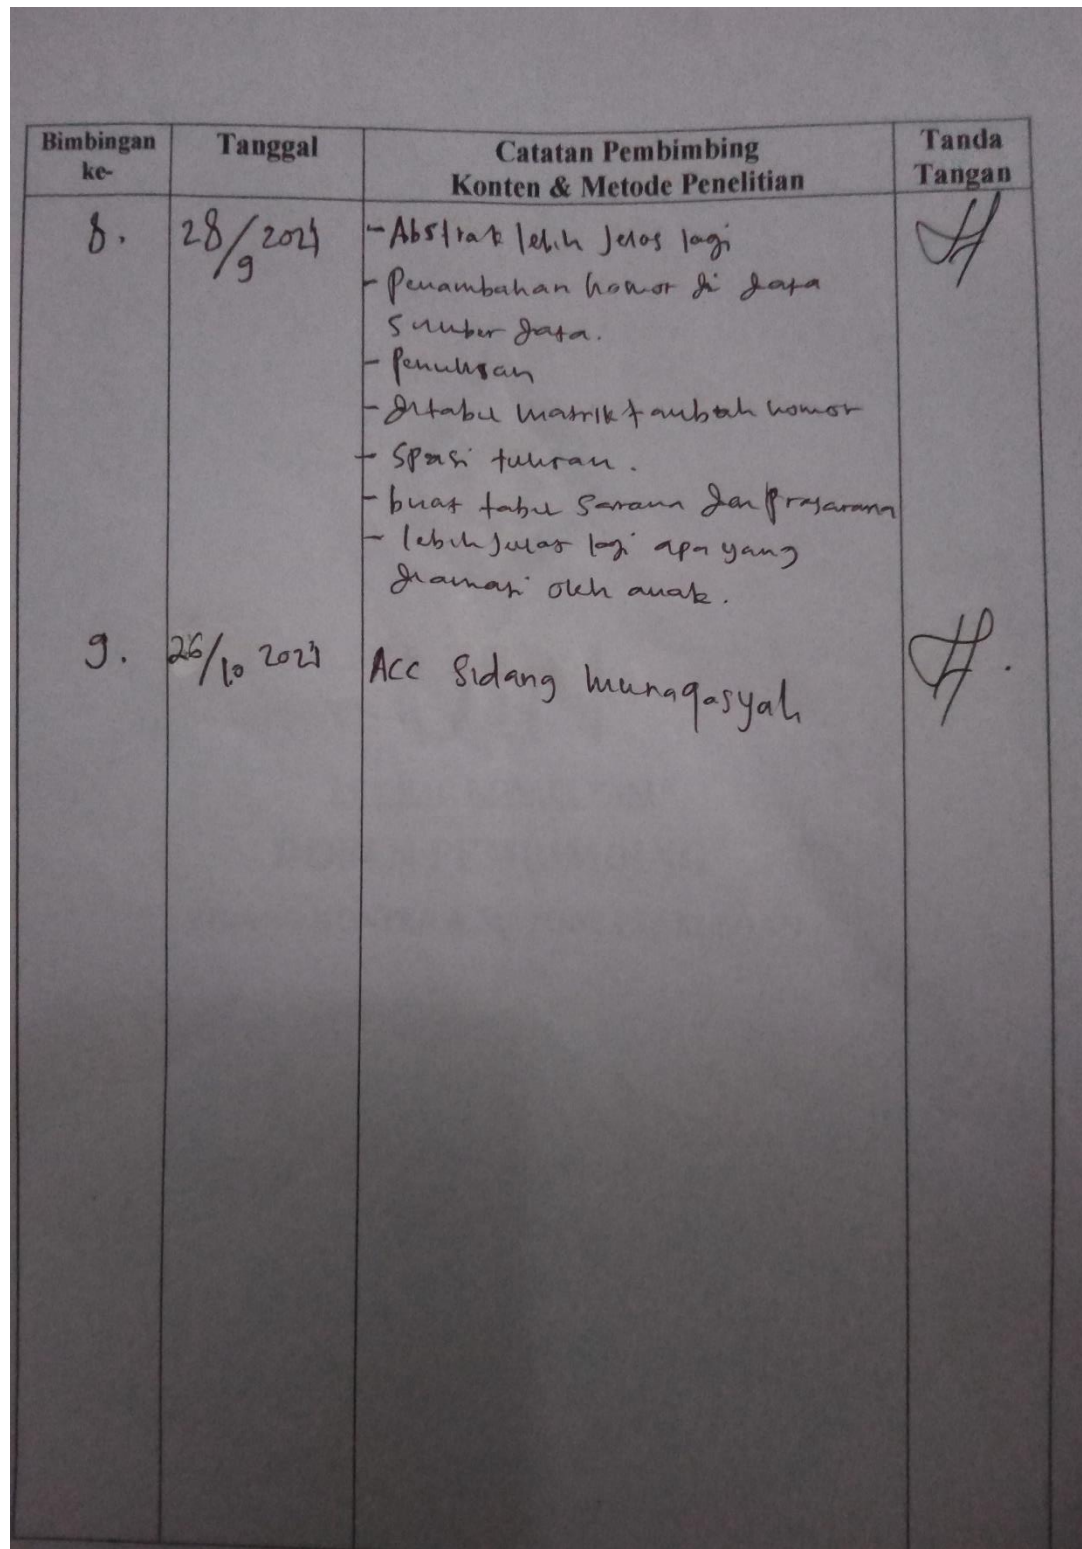 Bimbingan ke-
Tanggal
Catatan Pembimbing
Konten & Metode Penelitian
Tanda Tangan
8.
28/9 2021
- Abstrak lebih Jelas lagi
- Penambahan nomor di data
sumber data.
- Penulisan
- ditabel matrik tambah nomor
- Spasi tulisan.
- buat tabel Sarana dan Prasarana
- lebih Jelas lagi apa yang
diamati oleh anak.
9.
26/10 2021
Acc Sidang munaqasyah